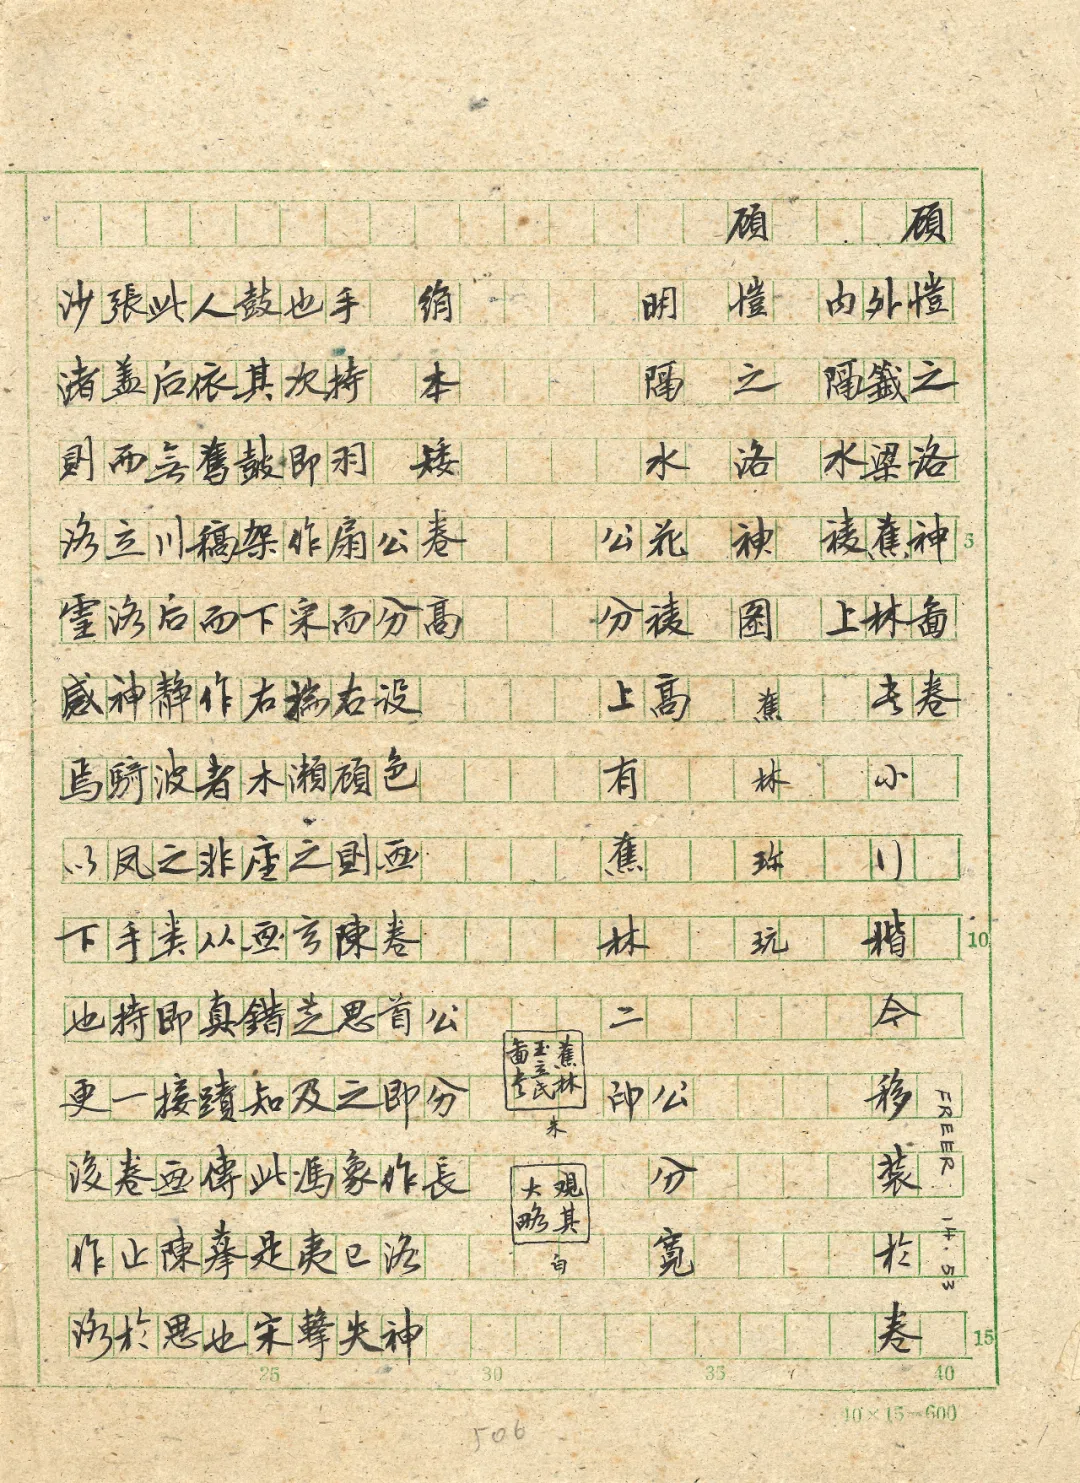 顾愷之洛神畵卷
外籤梁蕉林书小行楷今移装於卷
内隔水綾上
顾愷之洛神圖 蕉林珎玩
明隔水花綾高 公分寛
公分上有蕉林二印
蕉林
玉立氏
畵书
朱
觀其
大略
白
绢本矮卷高 公分長
公分設色画卷首即作洛神
手持羽扇而右顾則陳思之象已失
也次即作采湍瀬之玄芝及馮夷擊
鼓其鼓架下右木座画錯知此是宋
人依舊稿而作者非从真蹟傳摹也
此后無川后静波之类即接画陳思
張盖而立洛神騎凤手持一卷止於
沙渚則洛靈感焉以下也更後作洛
FREER 14.53
5
10
15
25
30
35
40
40×15=600
506